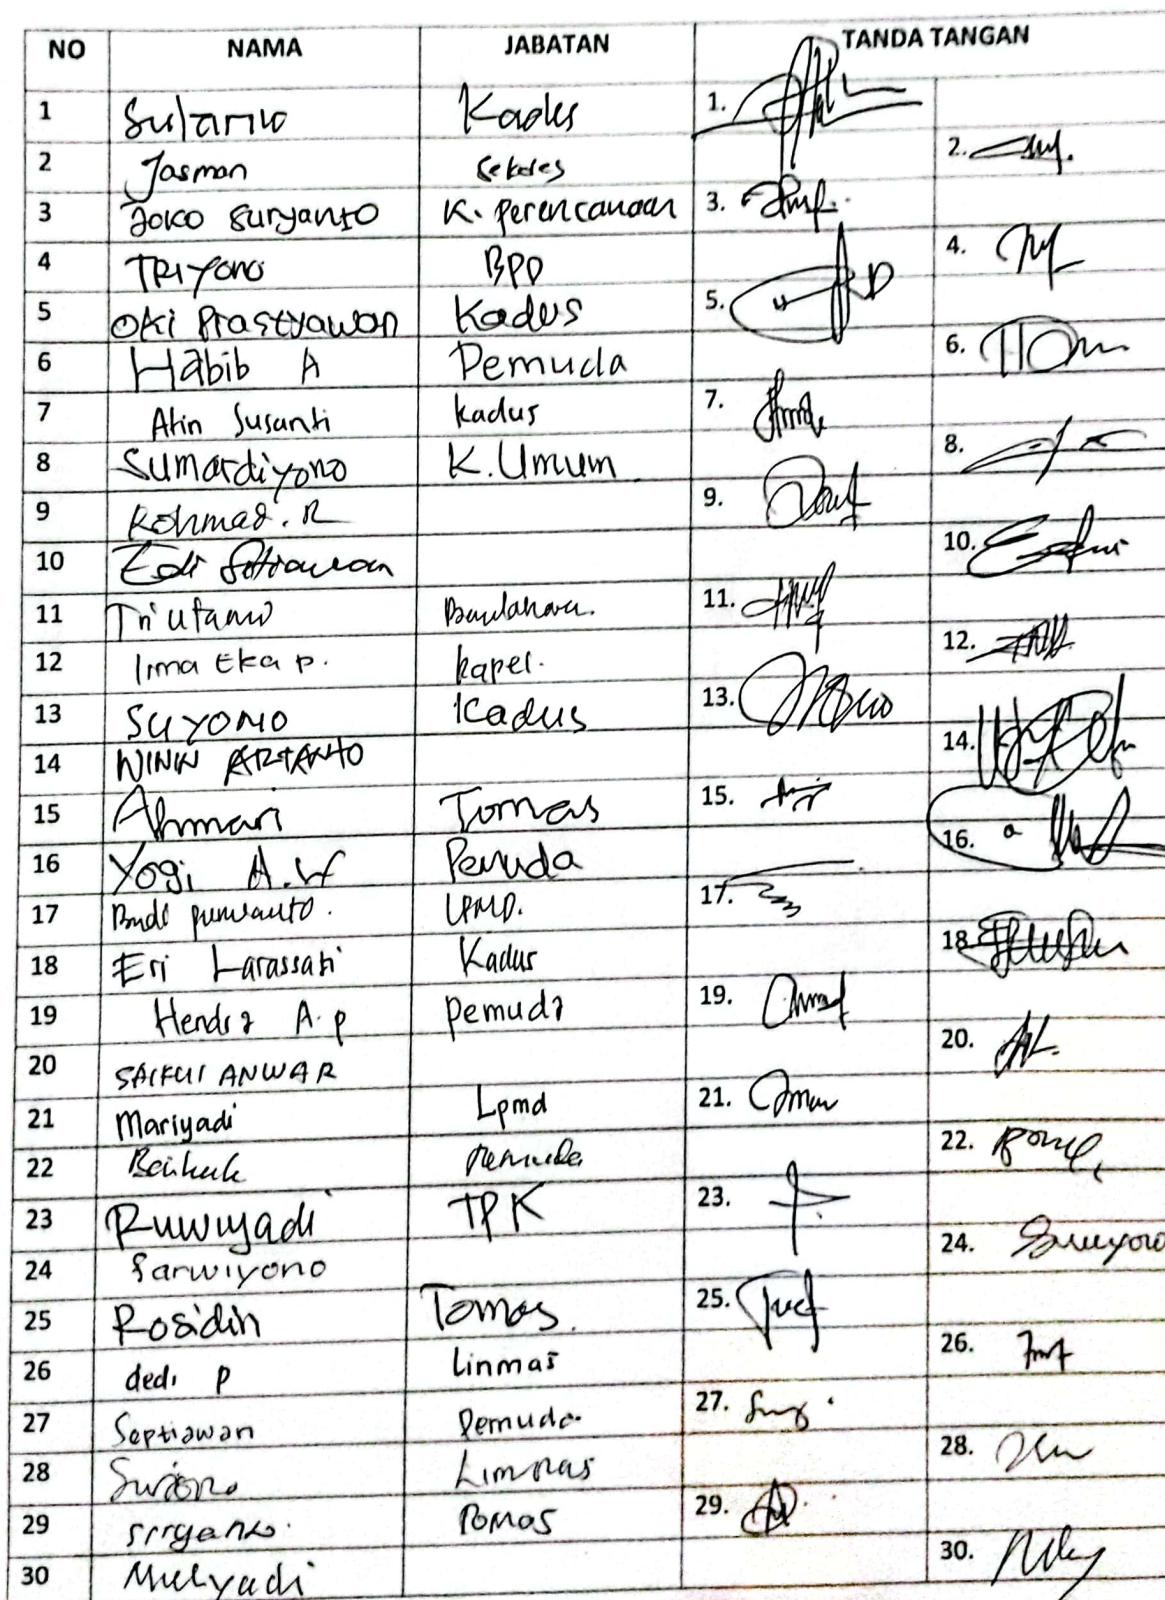 NO NAMA JABATAN TANDA TANGAN
1 Kadus 1.
2 Jasman Sekdes 2.
3 Joko Suryanto K. Perencanaan 3.
4 TRIYono BPD 4.
5 OKi Prastyawan Kadus 5.
6 Habib A Pemuda 6.
7 Atin Susanti kadus 7.
8 Sumardiyono K. Umum 8.
9 R 9.
10 Edi 10.
11 Tri utamo 11.
12 Irma Eka p. kapel. 12.
13 SUYONO Kadus 13.
14 ARIANTO 14.
15 Ahmari Tomas 15.
16 Yogi A.W Pemuda 16.
17 Budi purwanto. LPMD. 17.
18 Eri Larassati Kadus 18.
19 Hendra A.p pemuda 19.
20 SAIFUl ANWAR 20.
21 Mariyadi Lpmd 21.
22 Pemuda 22.
23 Ruwiyadi TPK 23.
24 Sarwiyono 24.
25 Rosidin Tomas. 25.
26 dedi p Linmas 26.
27 Septiawan Pemuda 27.
28 Linmas 28.
29 Tomas 29.
30 Mulyadi 30.